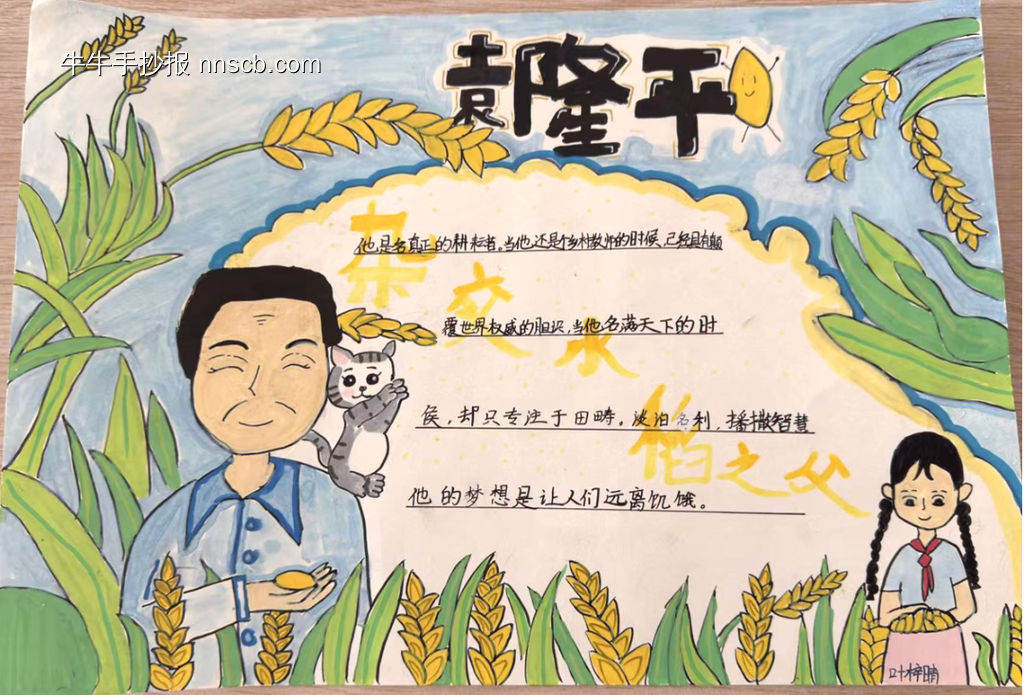 牛牛手抄报 nnscb.com
袁隆平
杂交水稻之父
他是名真正的耕耘者。当他还是个乡村教师的时候,已经具有颠
覆世界权威的胆识,当他名满天下的时
侯,却只专注于田畴,淡泊名利,播撒智慧
他的梦想是让人们远离饥饿。
叶梓晴